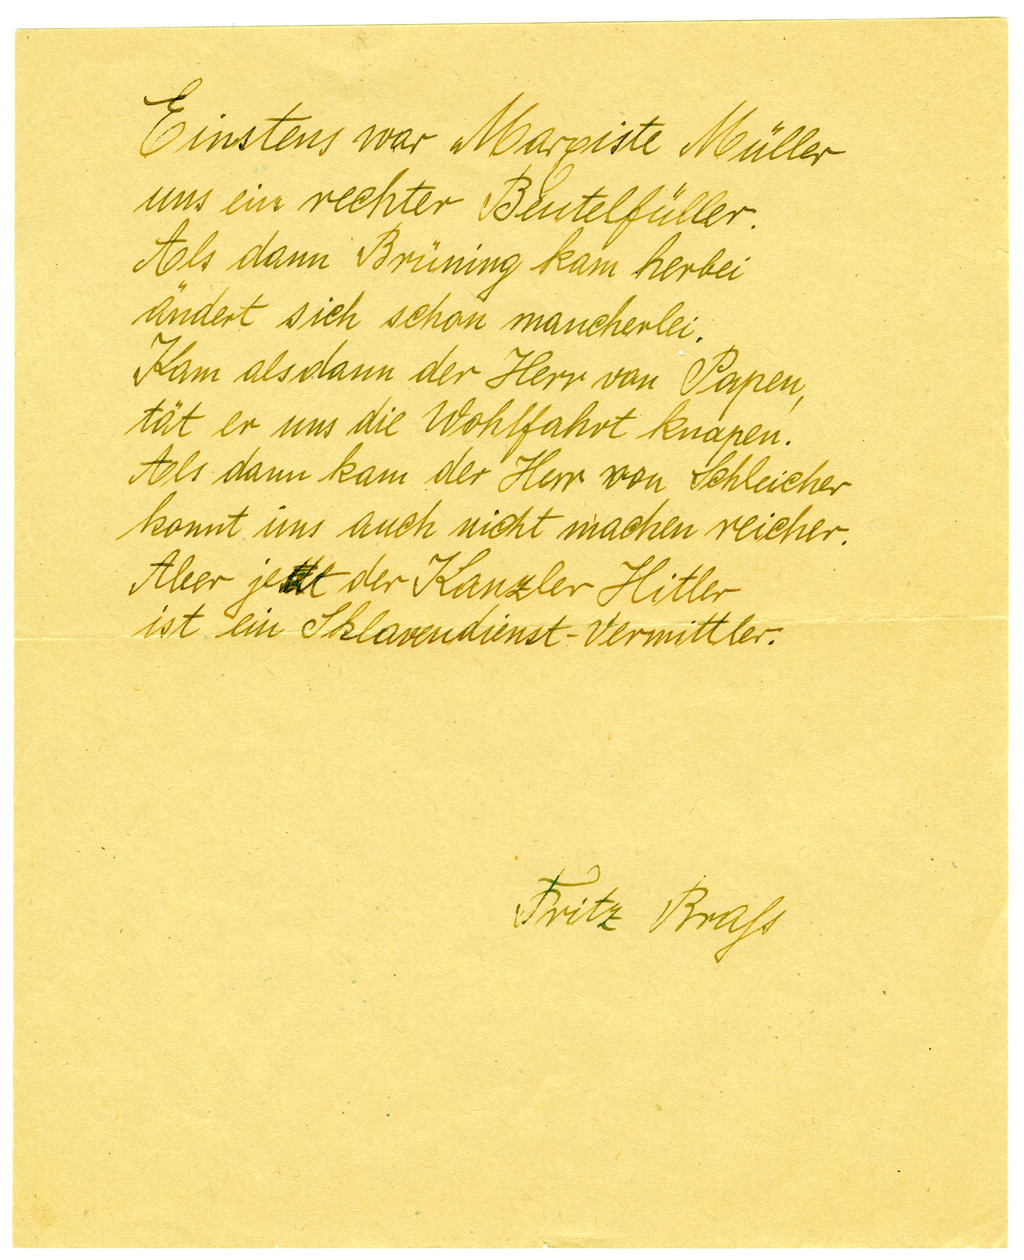 Einstens war Marxiste Müller
uns ein rechter Beutelfüller.
Als dann Brüning kam herbei
ändert sich schon mancherlei.
Kam alsdann der Herr von Papen,
tät er uns die Wohlfahrt knapen.
Als dann kam der Herr von Schleicher
konnt uns auch nicht machen reicher.
Aber jetzt der Kanzler Hitler
ist ein Sklavendienst-Vermittler.
Fritz Braß